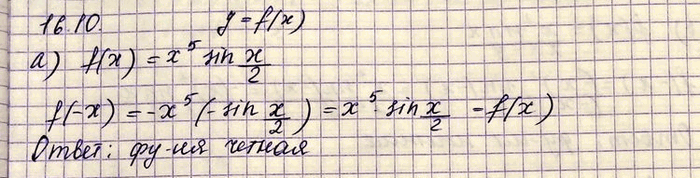 16.10. y = f(x)
а) f(x) = x⁵ sin x/2
f(-x) = -x⁵ (- sin x/2) = x⁵ · sin x/2 = f(x)
Ответ: фу-ия четная